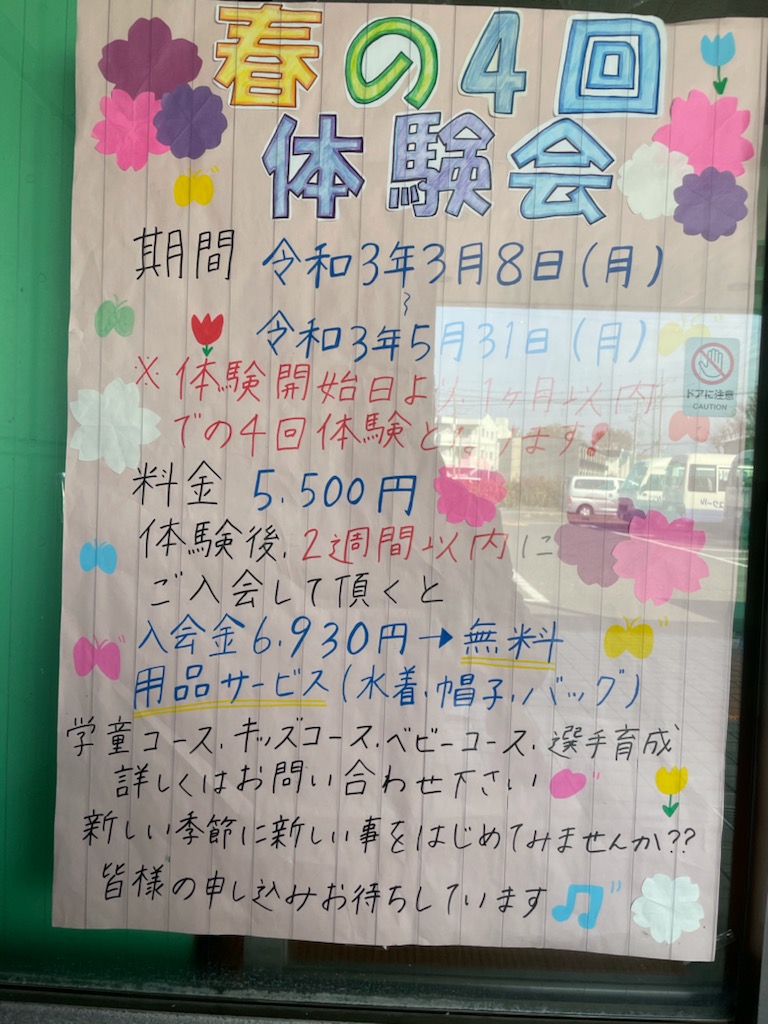 春の4回
体験会
期間 令和3年3月8日(月)
〜
令和3年5月31日(月)
※体験開始日より、1ヶ月以内
での4回体験となります!
ドアに注意
CAUTION
料金 5.500円
体験後、2週間以内に
ご入会して頂くと
入会金6.930円→無料
用品サービス(水着、帽子、バッグ)
学童コース、キッズコース、ベビーコース、選手育成
詳しくはお問い合わせ下さい
新しい季節に新しい事をはじめてみませんか??
皆様の申し込みお待ちしています♫